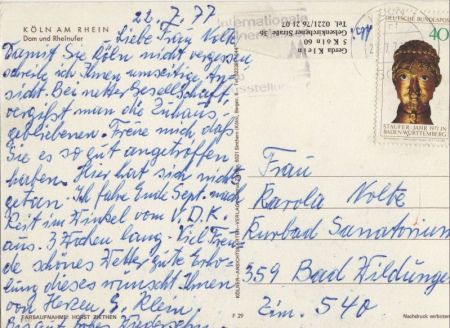 KÖLN AM RHEIN
Dom und Rheinufer
22.7.77
Liebe Frau Nolte
Damit Sie Köln nicht vergessen
schreibe ich Ihnen umseitige
Bei netter Gesellschaft
vergißt man die Zuhaus,
gebliebenen. Freue mich daß
Sie es so gut angetroffen
haben. Hier hat sich nicht
getan. Ich fahre Ende Sept. nach
im Winkel vom V.D.K.
aus. 3 Wochen lang. Viel Freu
de schönes Wetter gute Erho
lung dieses wünscht Ihnen
von Herzen G. Klein
Bis auf frohes Wiedersehen
FARBAUFNAHME: HORST ZIETHEN
F 29
Internationale
Gerda Klein
Gelsenkirchener Straße 36
5 Köln 60
Tel. 0221/76 21 07
DEUTSCHE BUNDESPOST
40
STAUFER-JAHR 1977 IN
BADEN-WÜRTTEMBERG
Frau
Karola Nolte
Kurbad Sanatorium
359 Bad Wildungen
Zim. 540
Nachdruck verboten